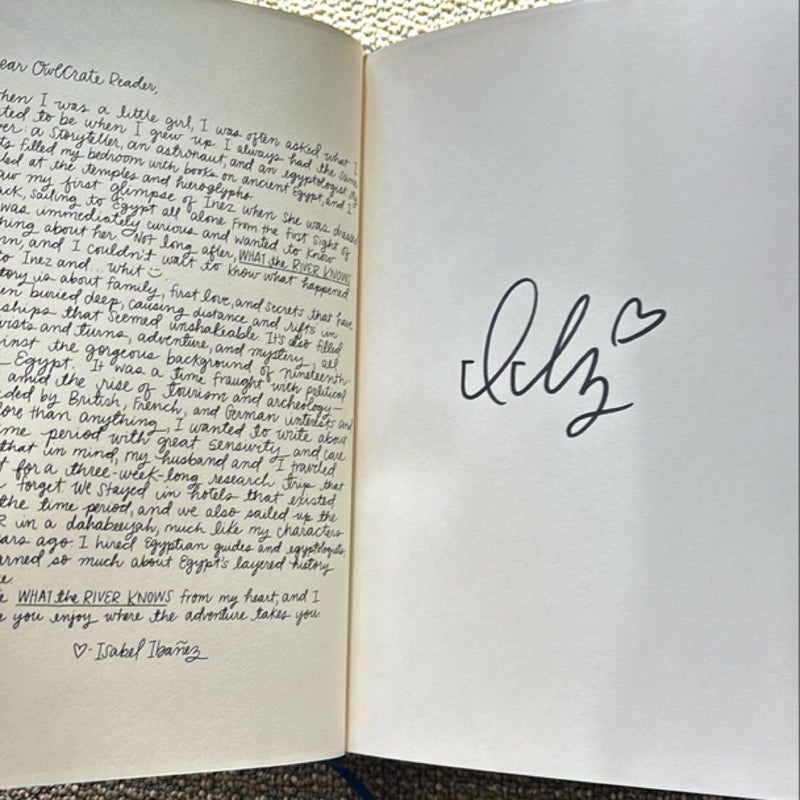 ear OwlCrate Reader,
hen I was a little girl, I was often asked what I
ted to be when I grew up. I always had the same
er: a storyteller, an astronaut, and an egyptologist. My
ts filled my bedroom with books on ancient Egypt, and I
led at the temples and hieroglyphs
aw my first glimpse of Inez when she was dressed
ack, sailing to Egypt all alone. From the first sight of
was immediately curious and wanted to know
thing about her. Not long after, WHAT the RIVER KNOWS
rn, and I couldn't wait to know what happened
to Inez and... whit
tory is about family, first love, and secrets that have
en buried deep, causing distance and rifts in
ships that seemed unshakable. It's also filled
wists and turns, adventure, and mystery, all
inst the gorgeous background of nineteenth-
Egypt. It was a time fraught with political
amid the rise of tourism and archeology—
ded by British, French, and German interests and
ore than anything, I wanted to write about
ime period with great sensivity and care
that in mind, my husband and I traveled
t for a three-week-long research trip that
forget. We stayed in hotels that existed
the time period, and we also sailed up the
R in a dahabeeyah, much like my characters
ears ago. I hired Egyptian guides and egyptologists,
arned so much about Egypt's layered history
e.
e WHAT the RIVER KNOWS from my heart, and I
e you enjoy where the adventure takes you
♡- Isabel Ibañez